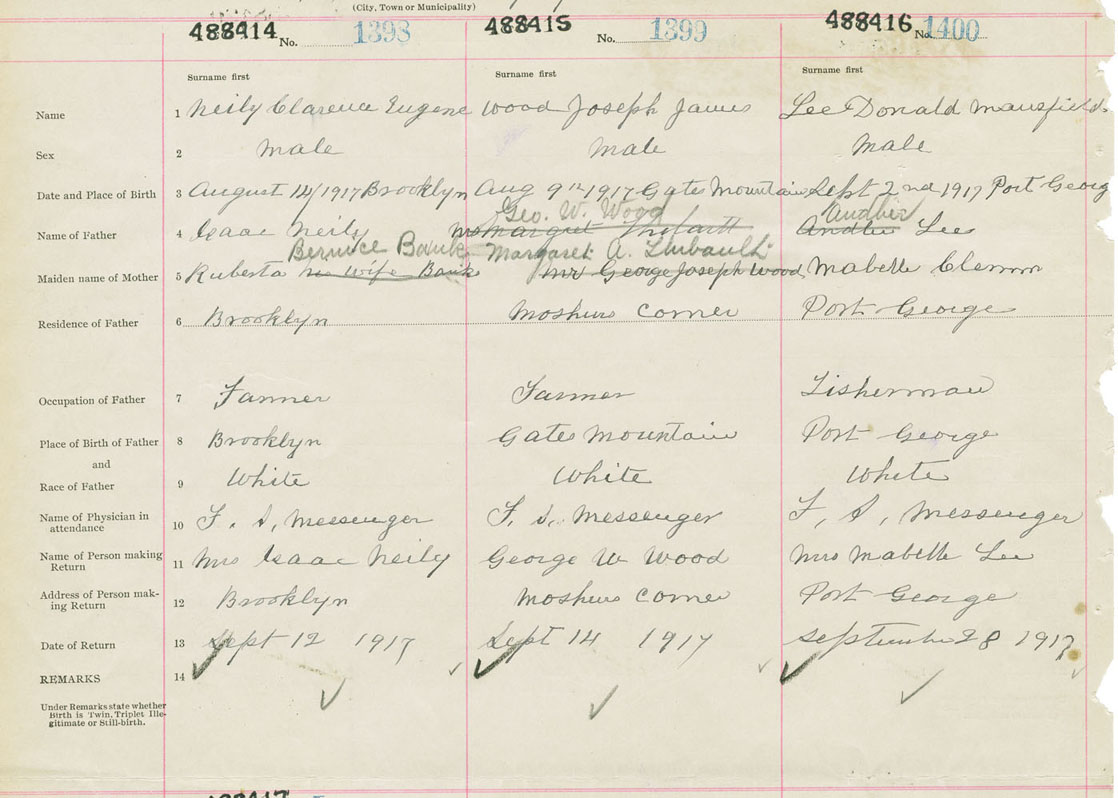 (City, Town or Municipality)
488414 No. 1398 488415 No. 1399 488416 No. 1400
Surname first Surname first Surname first
Name 1 Neily Clarence Eugene Wood Joseph James Lee Donald Mansfield
Sex 2 Male Male Male
Date and Place of Birth 3 August 14/1917 Brooklyn Aug 9th 1917 Gates Mountain Sept 2nd 1917 Port Georg
Geo. W. Wood
Name of Father 4 Isaac Neily Mrs Margret Lee
Bernice Banks Margaret A. Thibault
Maiden name of Mother 5 Ruberta Wife Banks Mr George Joseph Wood Mabelle
Residence of Father 6 Brooklyn Moshers Corner Port George
Occupation of Father 7 Farmer Farmer Fisherman
Place of Birth of Father 8 Brooklyn Gates Mountain Port George
and
Race of Father 9 White White White
Name of Physician in attendance 10 F. S. Messenger F. S. Messenger F. S. Messenger
Name of Person making Return 11 Mrs Isaac Neily George W Wood Mrs Mabelle Lee
Address of Person mak-
ing Return 12 Brooklyn Moshers Corner Port George
Date of Return 13 Sept 12 1917 Sept 14 1917 September 28 1917
REMARKS 14
Under Remarks state whether
Birth is Twin, Triplet Ille-
gitimate or Still-birth.